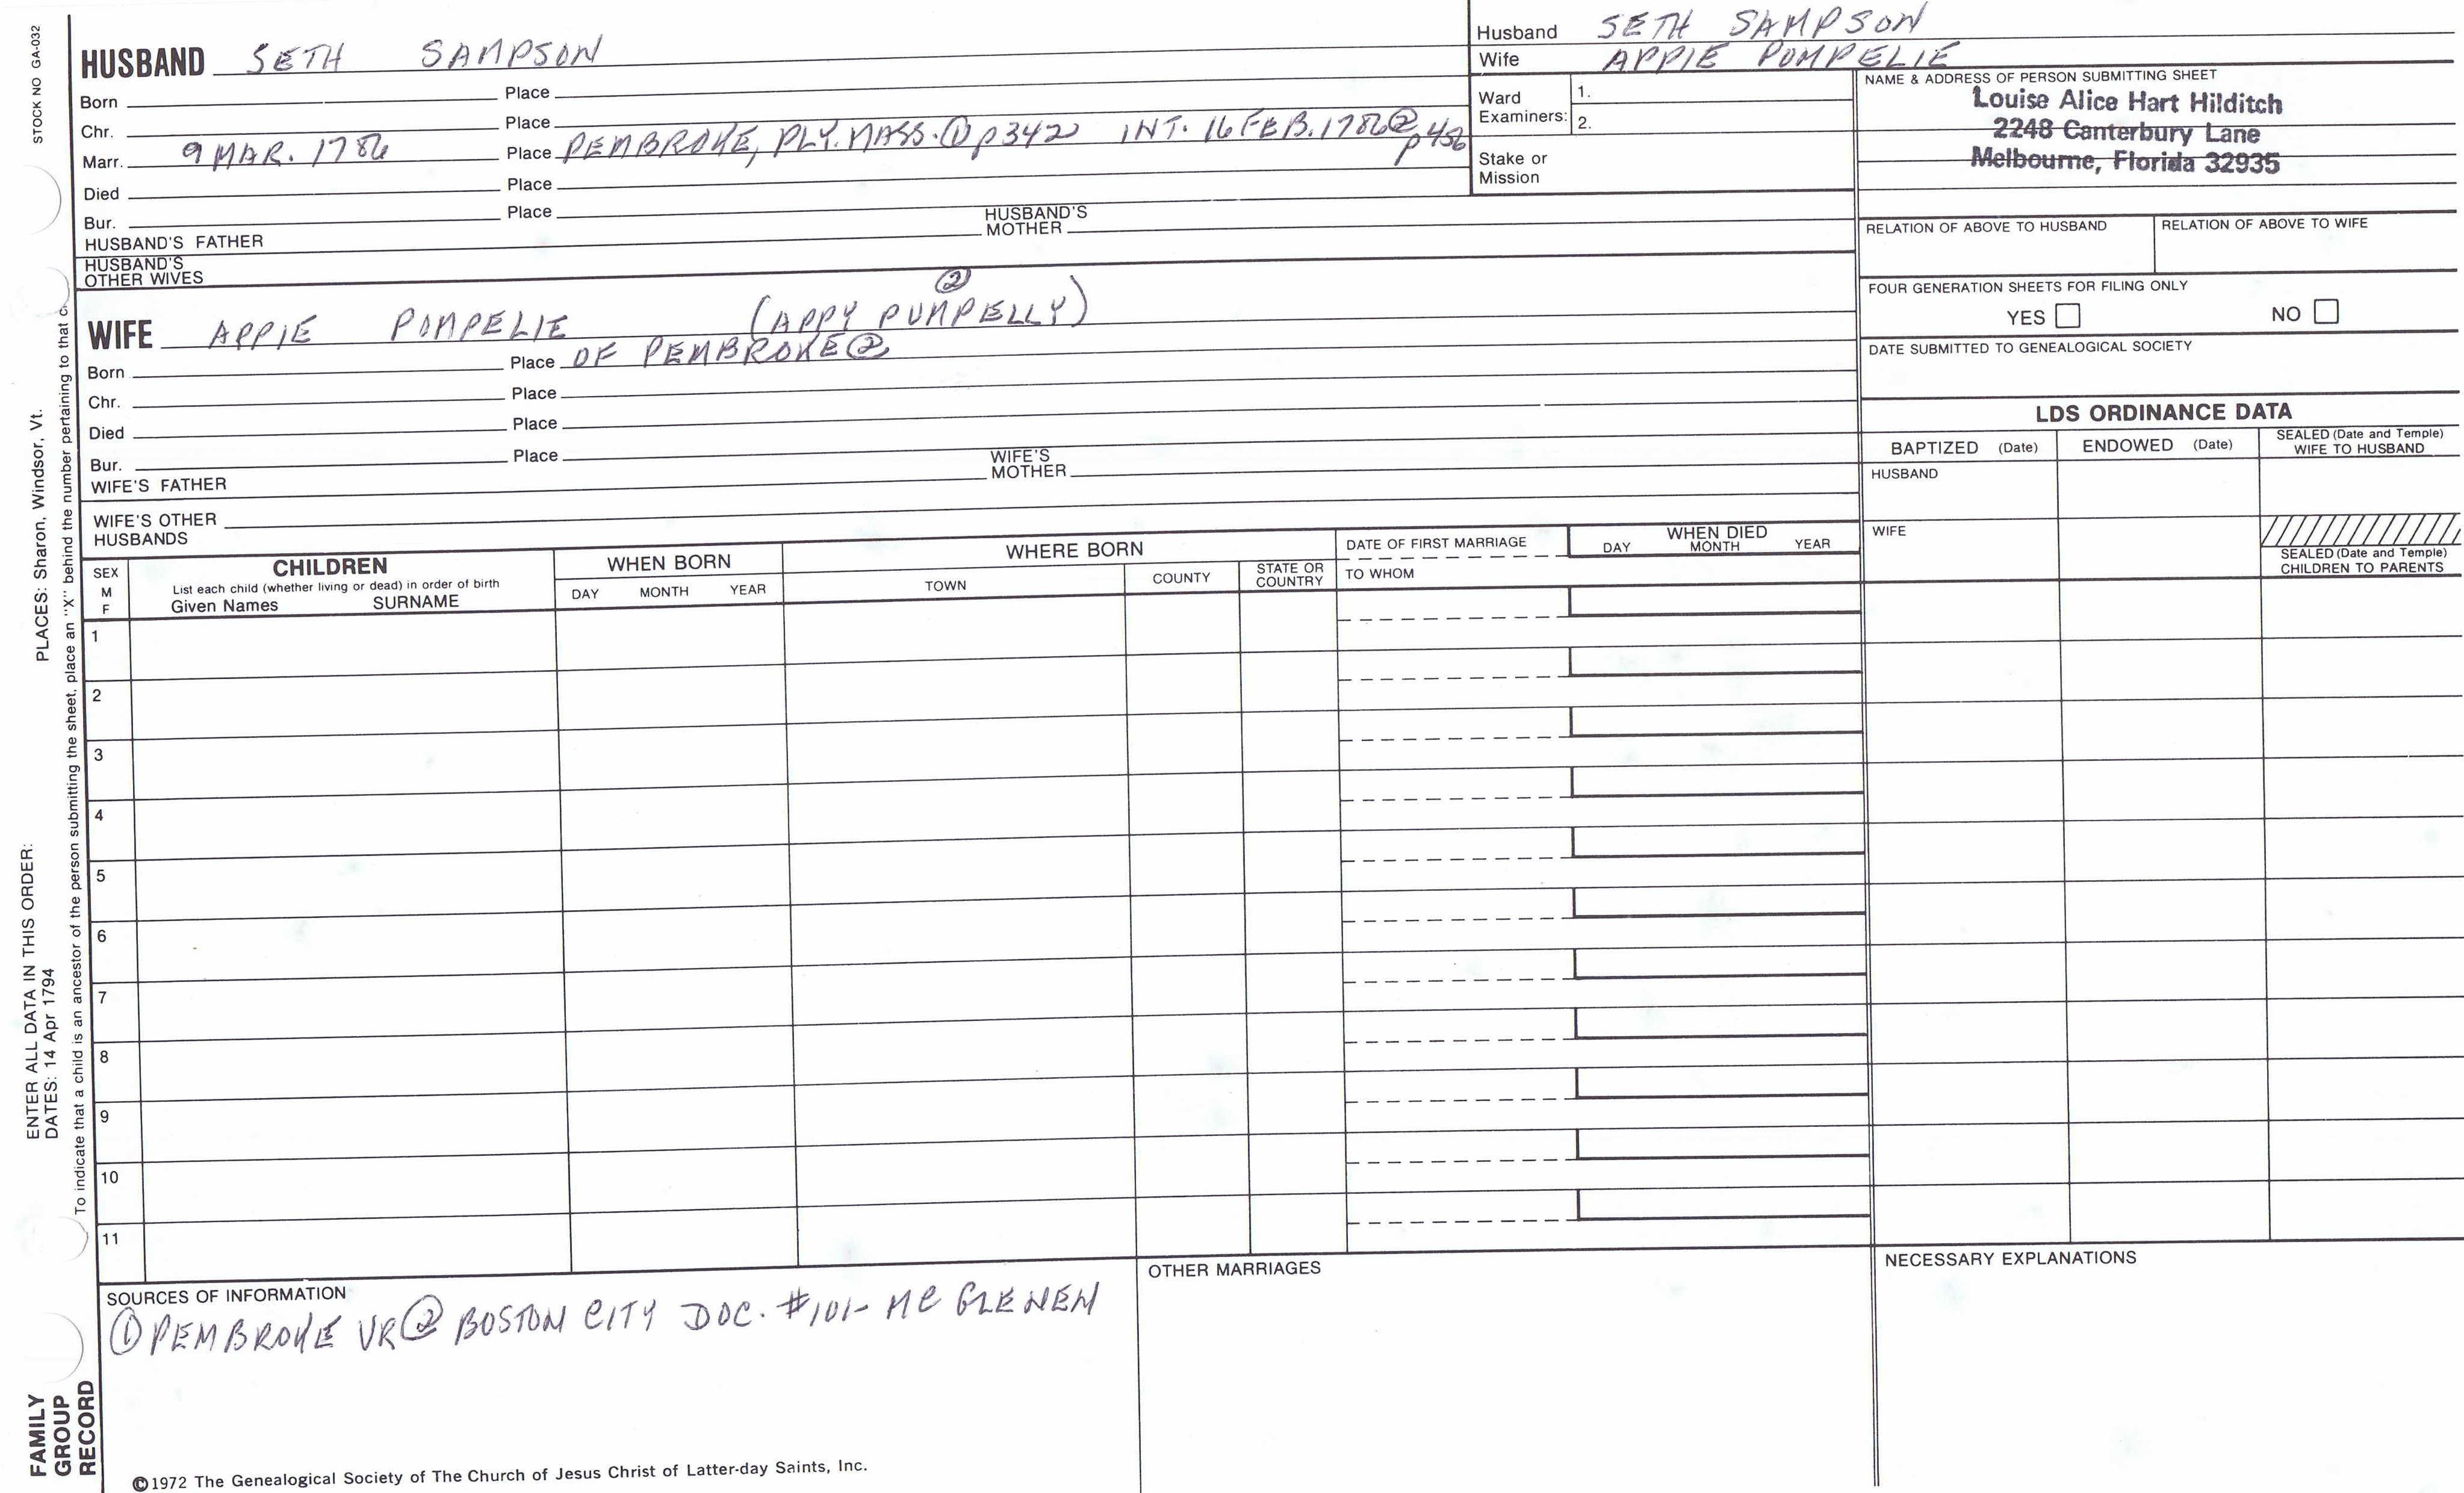 STOCK NO GA-032
PLACES: Sharon, Windsor, Vt.
ENTER ALL DATA IN THIS ORDER:
DATES: 14 Apr 1794
To indicate that a child is an ancestor of the person submitting the sheet, place an "X" behind the number pertaining to that c
FAMILY
GROUP
RECORD
HUSBAND SETH SAMPSON
Born Place
Chr. Place
Marr. 9 MAR. 1786 Place PEMBROKE, PLY. MASS. ① p342 INT. 16 FEB. 1786 ② p 456
Died Place
Bur. Place
HUSBAND'S FATHER HUSBAND'S MOTHER
HUSBAND'S
OTHER WIVES
WIFE APPIE POMPELIE (APPY PUMPELLY) ②
Born Place OF PEMBROKE ②
Chr. Place
Died Place
Bur. Place
WIFE'S FATHER WIFE'S MOTHER
WIFE'S OTHER
HUSBANDS
Husband SETH SAMPSON
Wife APPIE POMPELIE
Ward
Examiners:
1.
2.
Stake or
Mission
NAME & ADDRESS OF PERSON SUBMITTING SHEET
Louise Alice Hart Hilditch
2248 Canterbury Lane
Melbourne, Florida 32935
RELATION OF ABOVE TO HUSBAND RELATION OF ABOVE TO WIFE
FOUR GENERATION SHEETS FOR FILING ONLY
YES NO
DATE SUBMITTED TO GENEALOGICAL SOCIETY
LDS ORDINANCE DATA
BAPTIZED (Date) ENDOWED (Date) SEALED (Date and Temple)
WIFE TO HUSBAND
HUSBAND
WIFE
SEALED (Date and Temple)
CHILDREN TO PARENTS
SEX
M
F
CHILDREN
List each child (whether living or dead) in order of birth
Given Names SURNAME
WHEN BORN
DAY MONTH YEAR
WHERE BORN
TOWN COUNTY STATE OR
COUNTRY
DATE OF FIRST MARRIAGE
TO WHOM
WHEN DIED
DAY MONTH YEAR
1
2
3
4
5
6
7
8
9
10
11
SOURCES OF INFORMATION
① PEMBROKE VR ② BOSTON CITY DOC. #101- MC GLENEN
OTHER MARRIAGES
NECESSARY EXPLANATIONS
©1972 The Genealogical Society of The Church of Jesus Christ of Latter-day Saints, Inc.